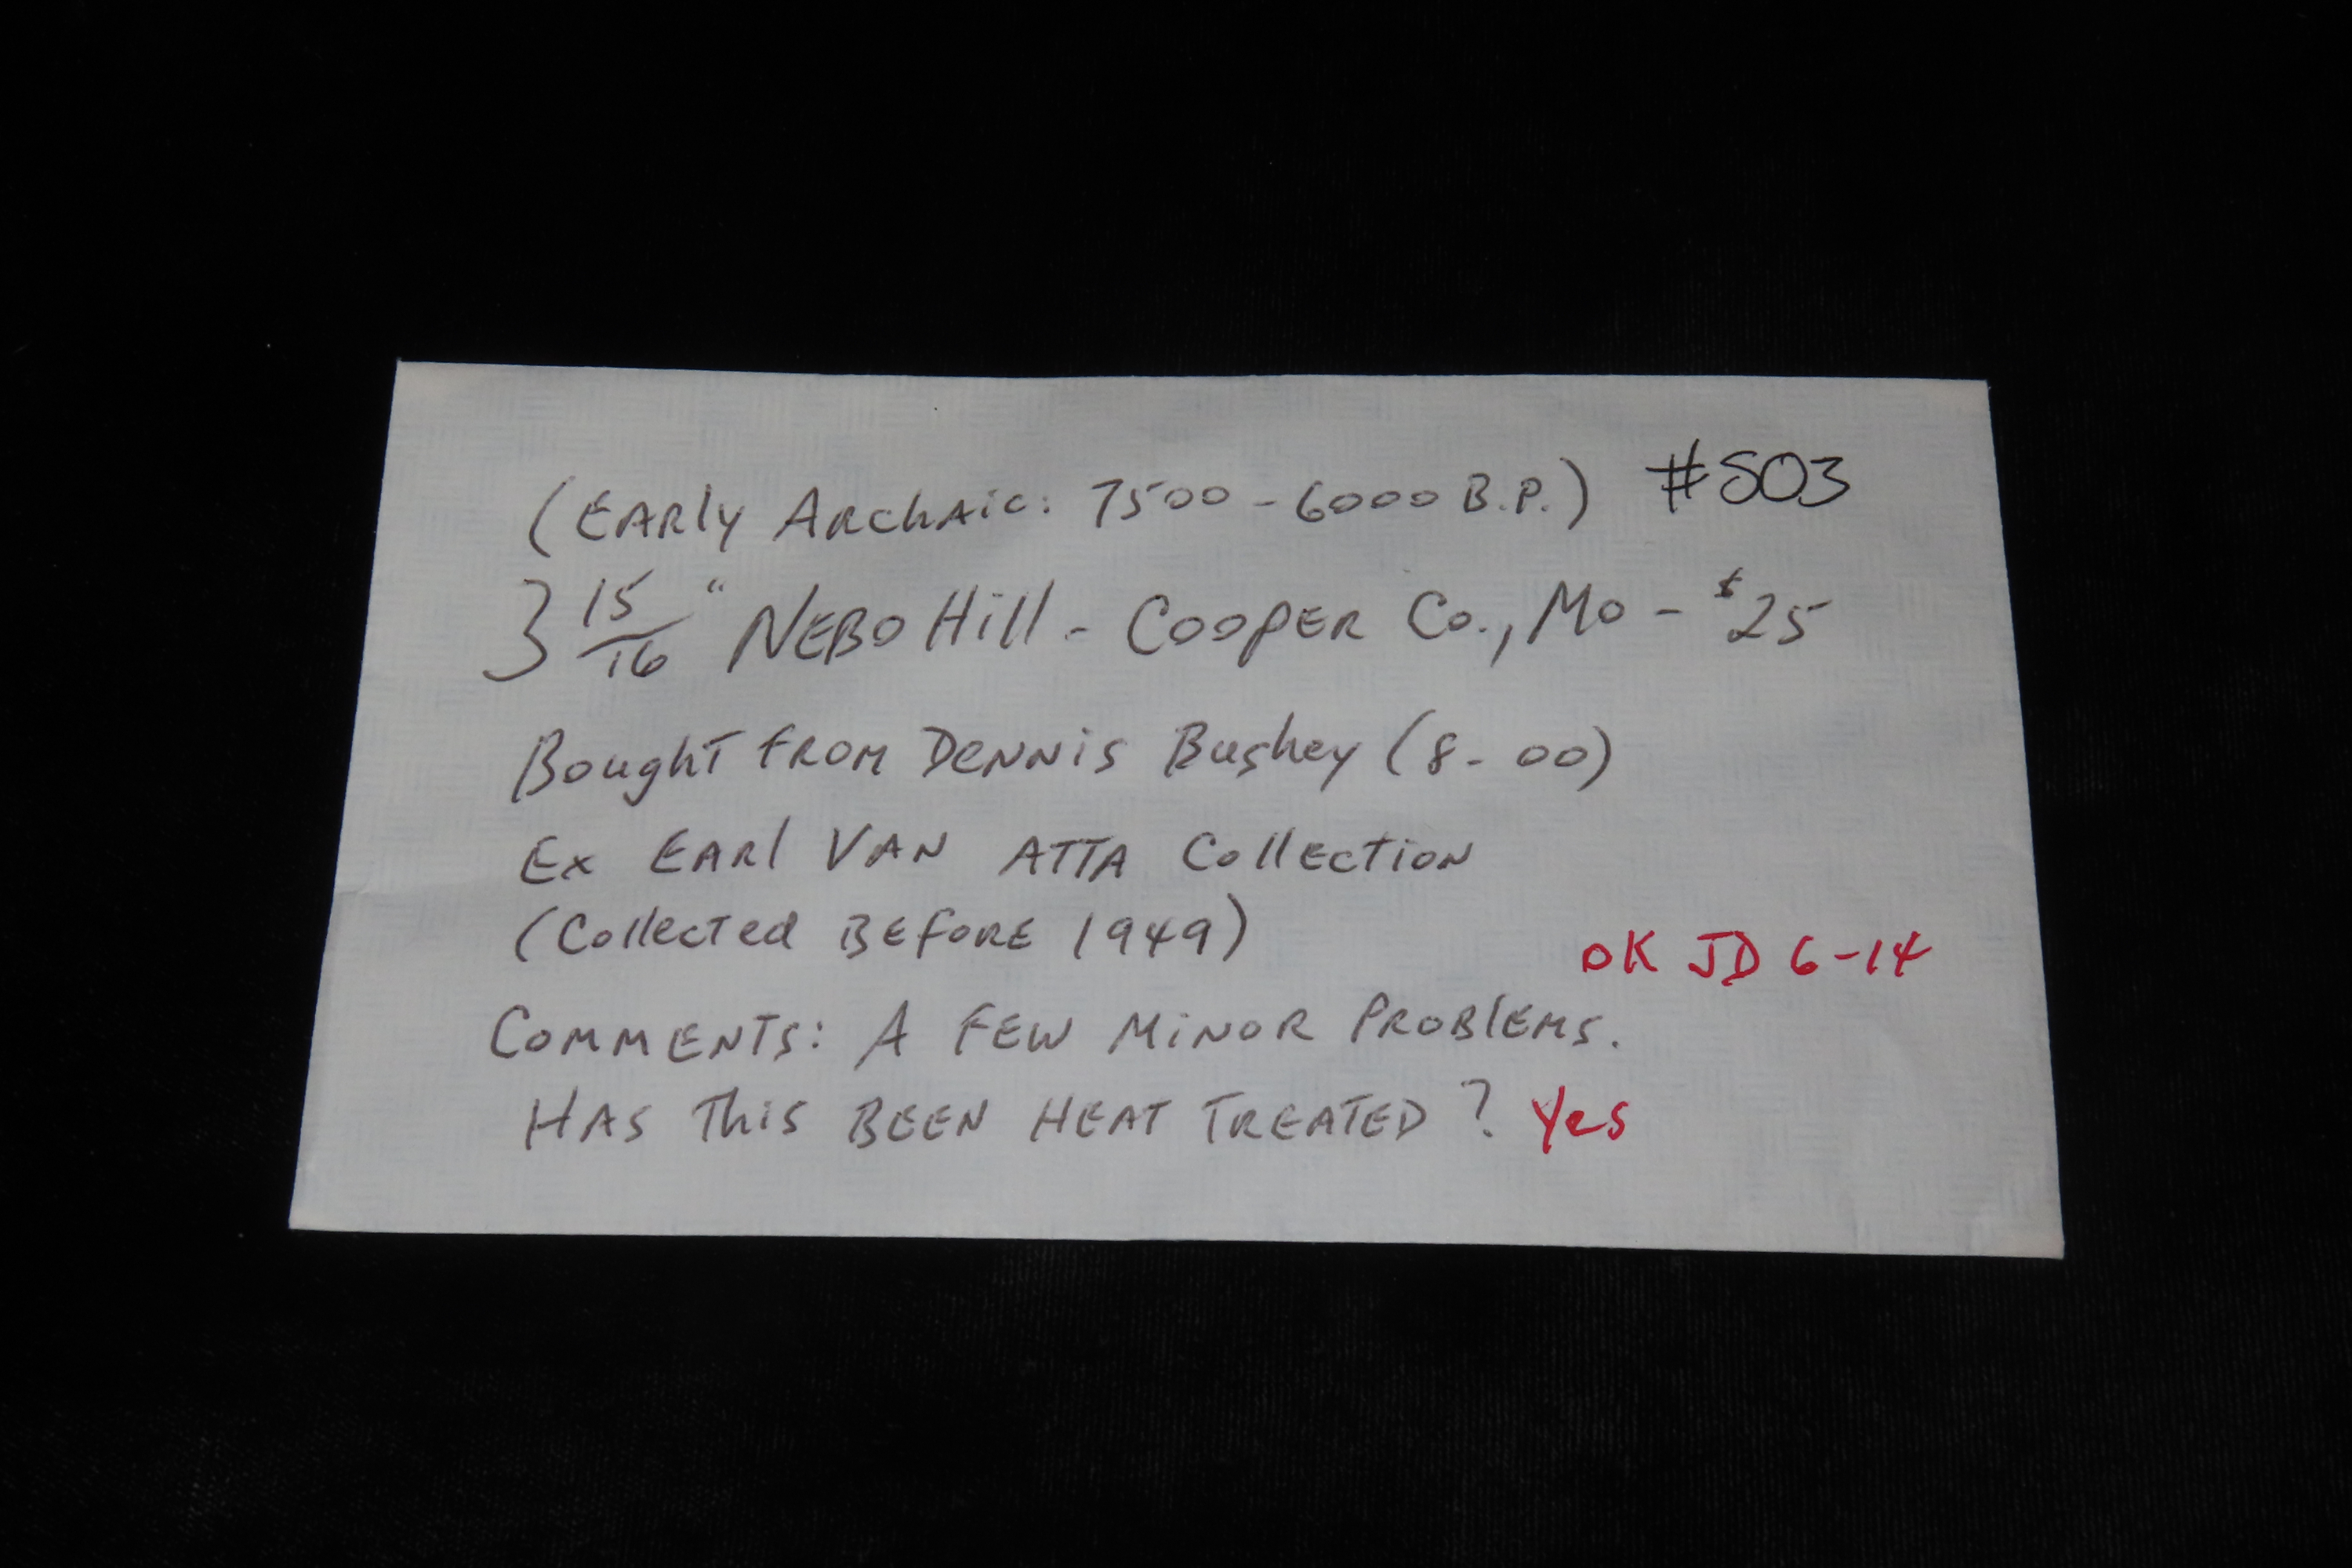 (Early Archaic: 7500-6000 B.P.) #503
3 15/16" Nebo Hill - Cooper Co., Mo - $25
Bought from Dennis Bushey (8-00)
Ex Earl Van Atta Collection
(Collected Before 1949)
OK JD 6-14
Comments: A Few Minor Problems.
Has This Been Heat Treated? Yes